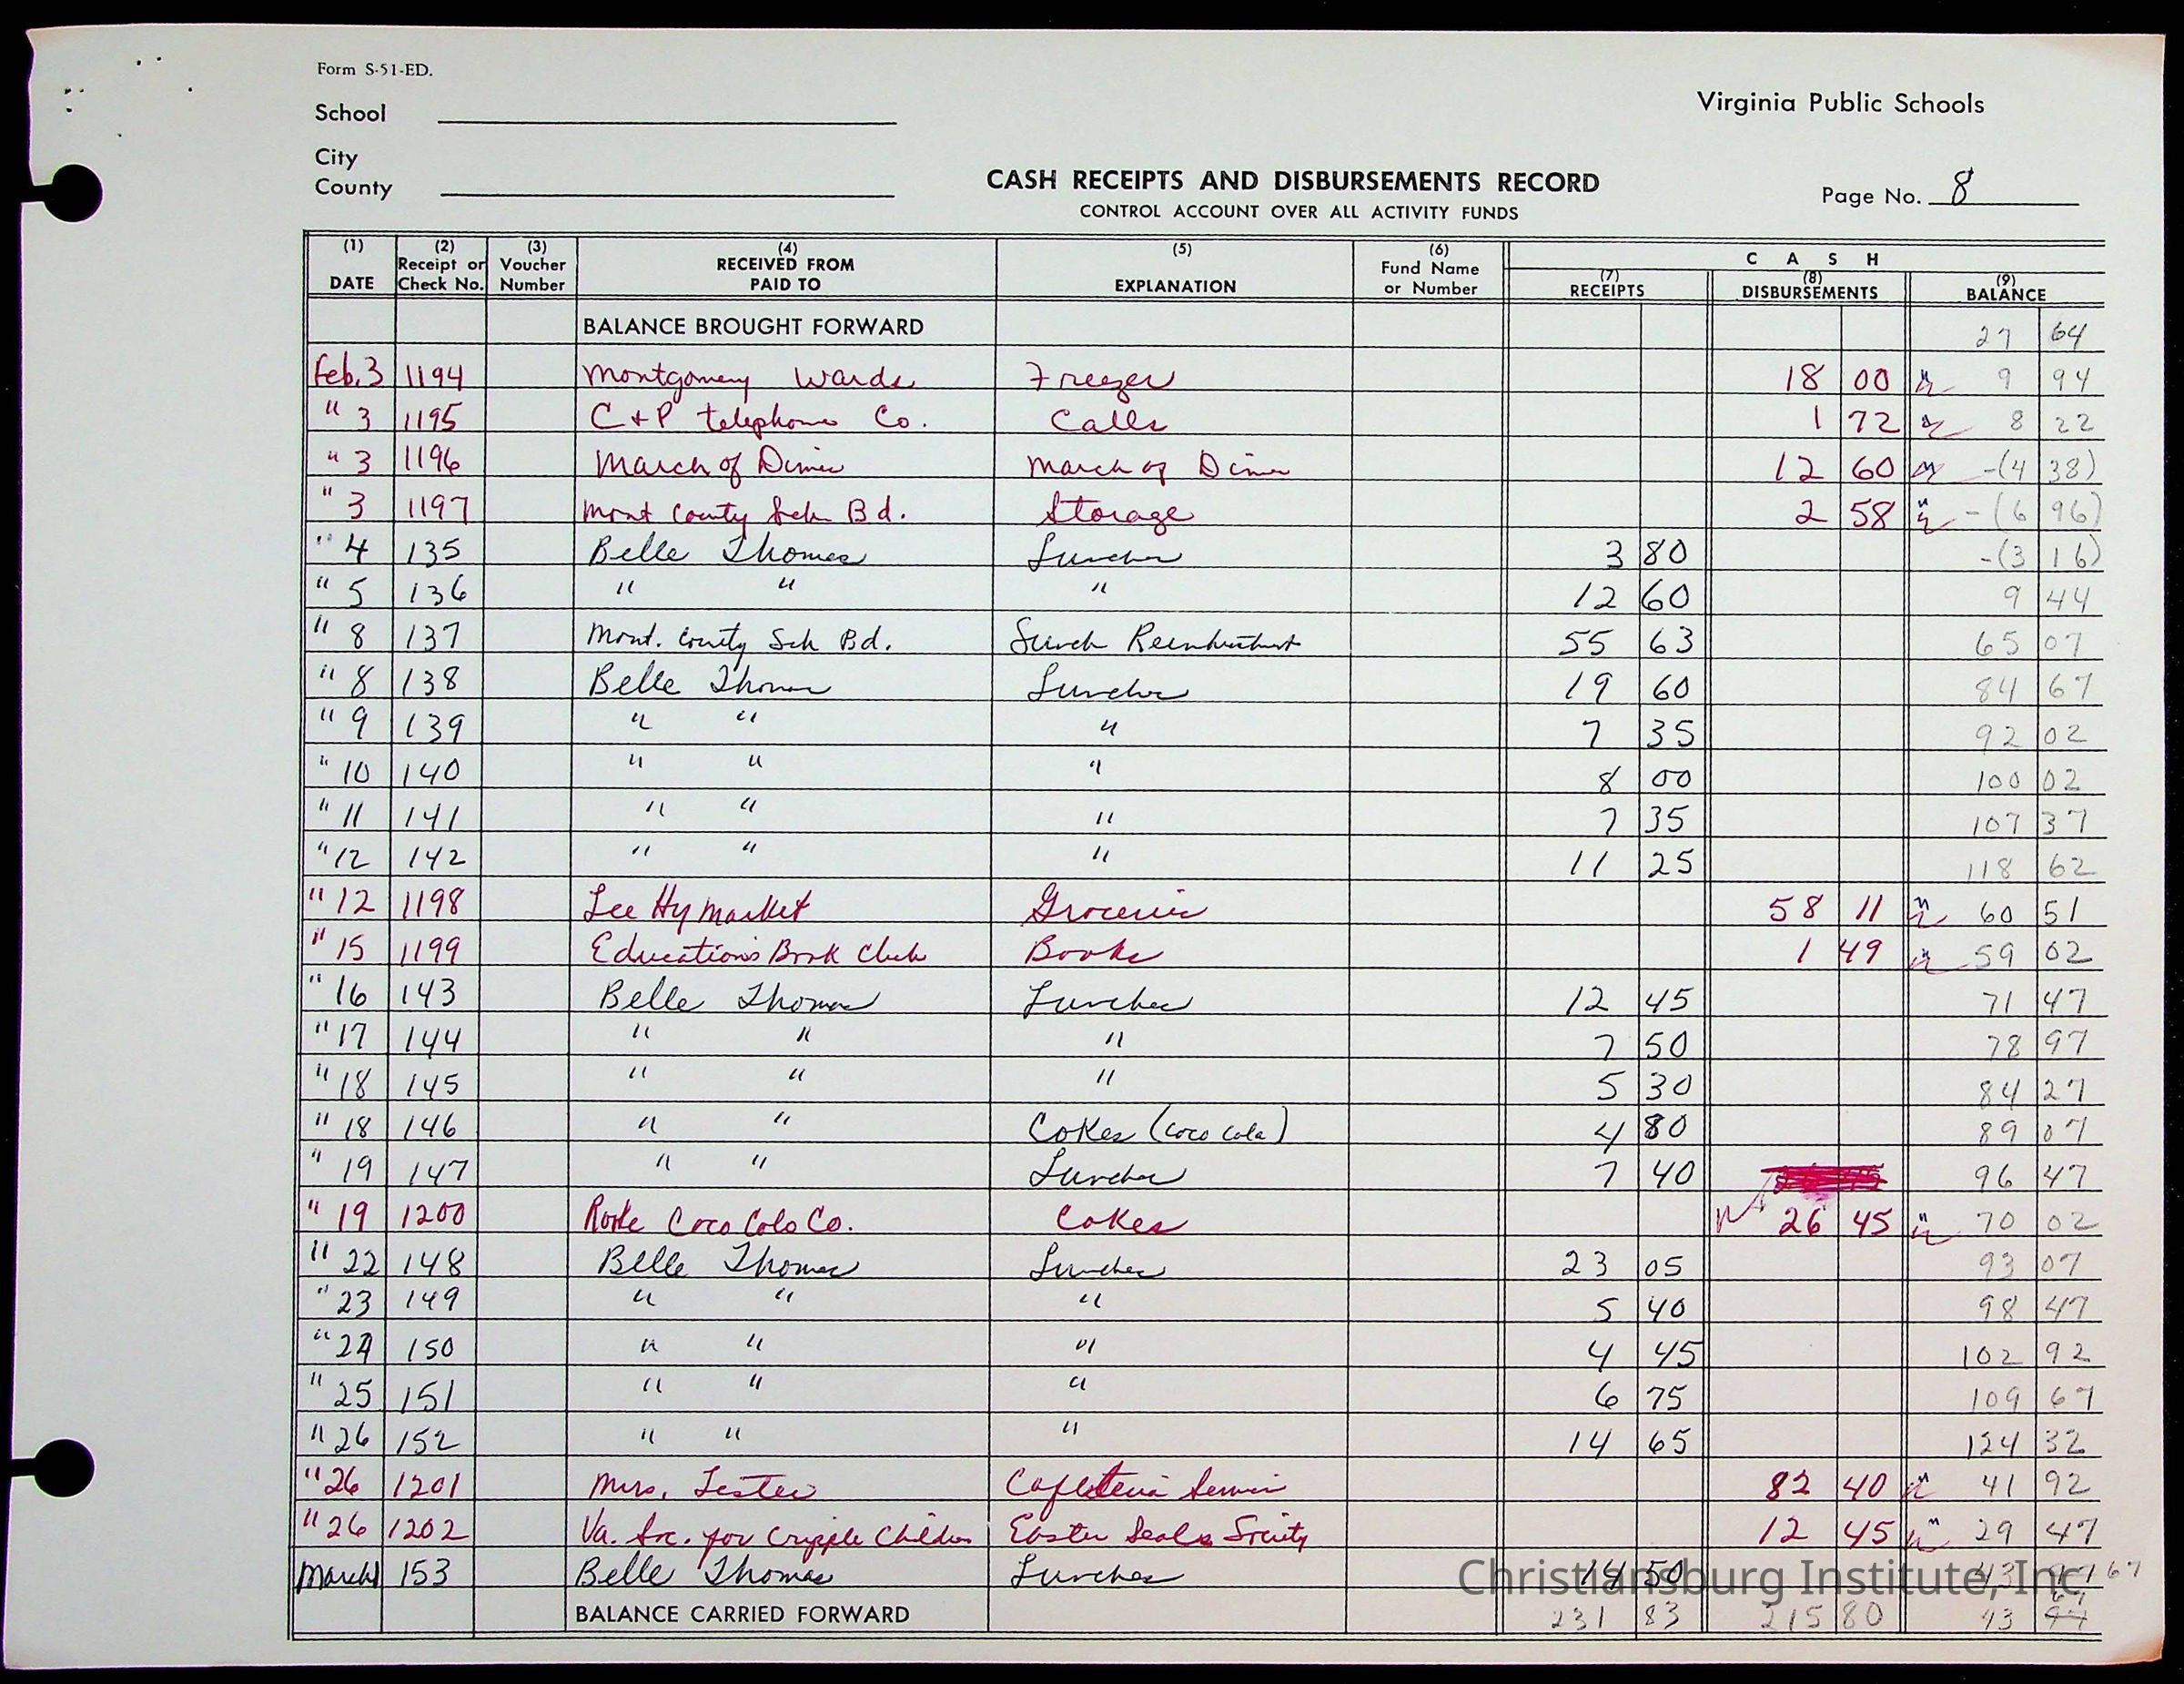 Form S-51-ED.
School
Virginia Public Schools
City
County
CASH RECEIPTS AND DISBURSEMENTS RECORD
CONTROL ACCOUNT OVER ALL ACTIVITY FUNDS
Page No. 8
C A S H
(1) (2) (3) (4) (5) (6) (7) (8) (9)
DATE Receipt or Check No. Voucher Number RECEIVED FROM PAID TO EXPLANATION Fund Name or Number RECEIPTS DISBURSEMENTS BALANCE
BALANCE BROUGHT FORWARD 27 64
Feb. 3 1194 Montgomery Wards Freezer 18 00 9 94
" 3 1195 C + P telephone Co. Calls 1 72 8 22
" 3 1196 March of Dimes March of Dimes 12 60 -(4 38)
" 3 1197 Mont County Sch Bd. Storage 2 58 -(6 96)
" 4 135 Belle Thomas Lunches 3 80 -(3 16)
" 5 136 " " " 12 60 9 44
" 8 137 Mont. County Sch Bd. Lunch 55 63 65 07
" 8 138 Belle Thomas Lunches 19 60 84 67
" 9 139 " " " 7 35 92 02
" 10 140 " " " 8 00 100 02
" 11 141 " " " 7 35 107 37
" 12 142 " " " 11 25 118 62
" 12 1198 Lee Hy Market Groceries 58 11 60 51
" 15 1199 Education's Book Club Books 1 49 59 02
" 16 143 Belle Thomas Lunches 12 45 71 47
" 17 144 " " " 7 50 78 97
" 18 145 " " " 5 30 84 27
" 18 146 " " Cokes (Coco Cola) 4 80 89 07
" 19 147 " " Lunches 7 40 96 47
" 19 1200 Coco Cola Co. Cokes 26 45 70 02
" 22 148 Belle Thomas Lunches 23 05 93 07
" 23 149 " " " 5 40 98 47
" 24 150 " " " 4 45 102 92
" 25 151 " " " 6 75 109 67
" 26 152 " " " 14 65 124 32
" 26 1201 Mrs. Lester Cafeteria Service 82 40 41 92
" 26 1202 Va. Soc. for Cripple Children Easter Seals Society 12 45 29 47
March 1 153 Belle Thomas Lunches 14 50 43 97 67
BALANCE CARRIED FORWARD 231 83 215 80 43 97 67
Christiansburg Institute, Inc.